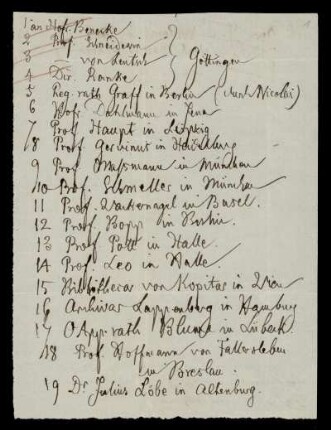 1 an Hofr. Benecke
2 Prof. Schneidewin
3 – von Leutsch } Göttingen
4 Dir. Ranke
5 Reg. rath Graff in Berlin (durch Nicolai)
6 Hofr. Dahlmann in Jena
7 Prof. Haupt in Leipzig
8 Prof. Gervinus in Heidelberg
9 Prof Massmann in München
10 Prof. Schmeller in München
11 Prof. Wackernagel in Basel.
12 Prof. Bopp in Berlin.
13 Prof. Pott in Halle.
14 Prof. Leo in Halle
15 Bibliothecar von Kopitar in Wien
16 Archivar Lappenberg in Hamburg
17 OApp. rath Blume in Lübeck
18 Prof. Hoffmann von Fallersleben
in Breslau.
19 Dr Julius Löbe in Altenburg.